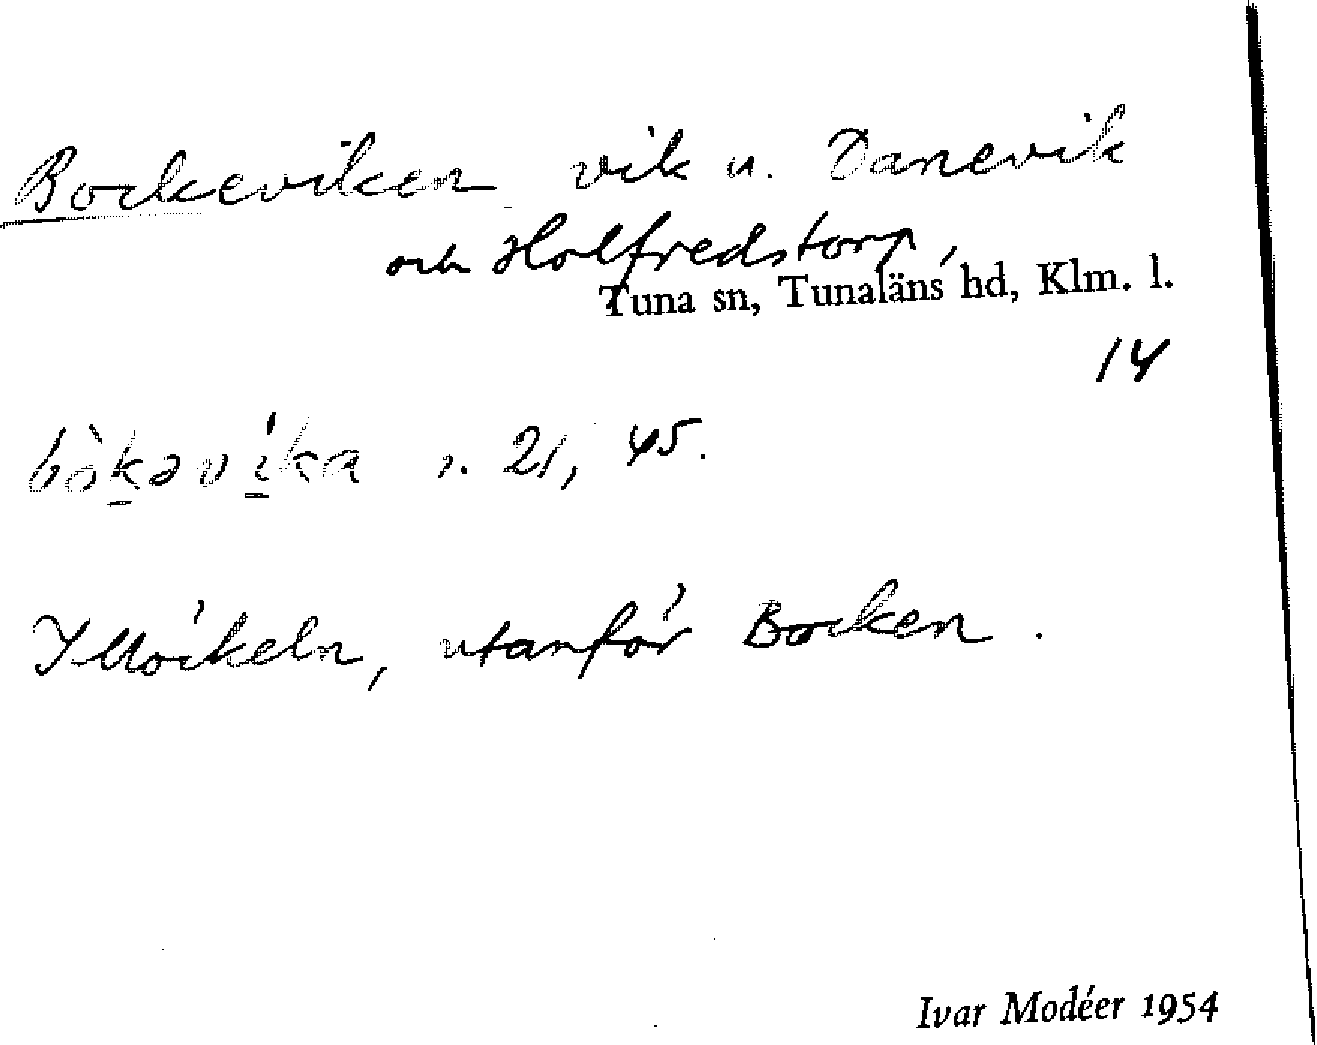 Bockeviken vik u. Danevik
och Holfredstorp,
Tuna sn, Tunaläns hd, Klm. l.
14
bòkəvíka s. 21, 45.
I Möckeln, utanför Bocken.
Ivar Modéer 1954